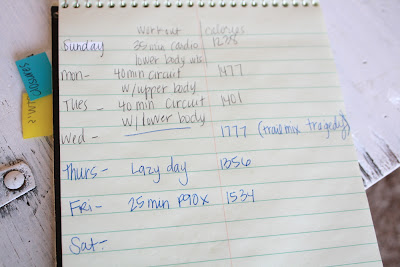 workout calories
Sunday 35 min cardio
lower body wts.
mon- 40 min circuit 1477
w/upper body
Tues - 40 min circuit 1401
w/ lower body
wed - 1777 (trail mix tragedy)
Thurs - Lazy day 1356
Fri - 25 min P90X 1534
Sat-
CLOSURES